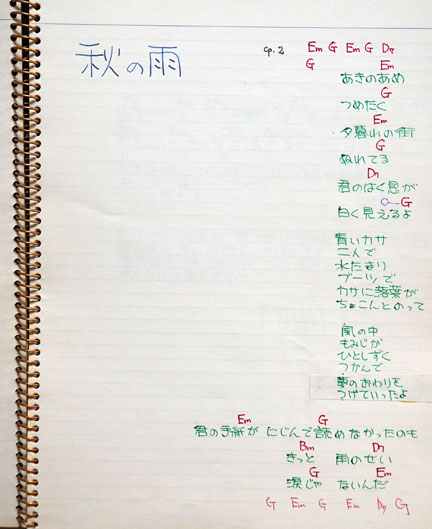 秋の雨
cp.2 Em G Em G D7
G Em
あきのあめ
G
つめたく
Em
夕暮れの街
G
ぬれてる
D7
君のはく息が
G
白く見えるよ
青いカサ
二人で
水たまり
ブーツで
カサに落葉が
ちょこんとのって
風の中
もみじが
ひとしずく
つかんで
夢のおわりを
つげていったよ
Em G
君の手紙が にじんで読めなかったのも
Bm D7
きっと 雨のせい
G Em
涙じゃ ないんだ
G Em G Em D7 G